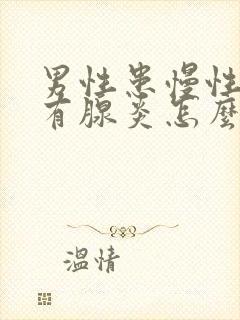 男性患慢性
有腺炎怎麼
温情